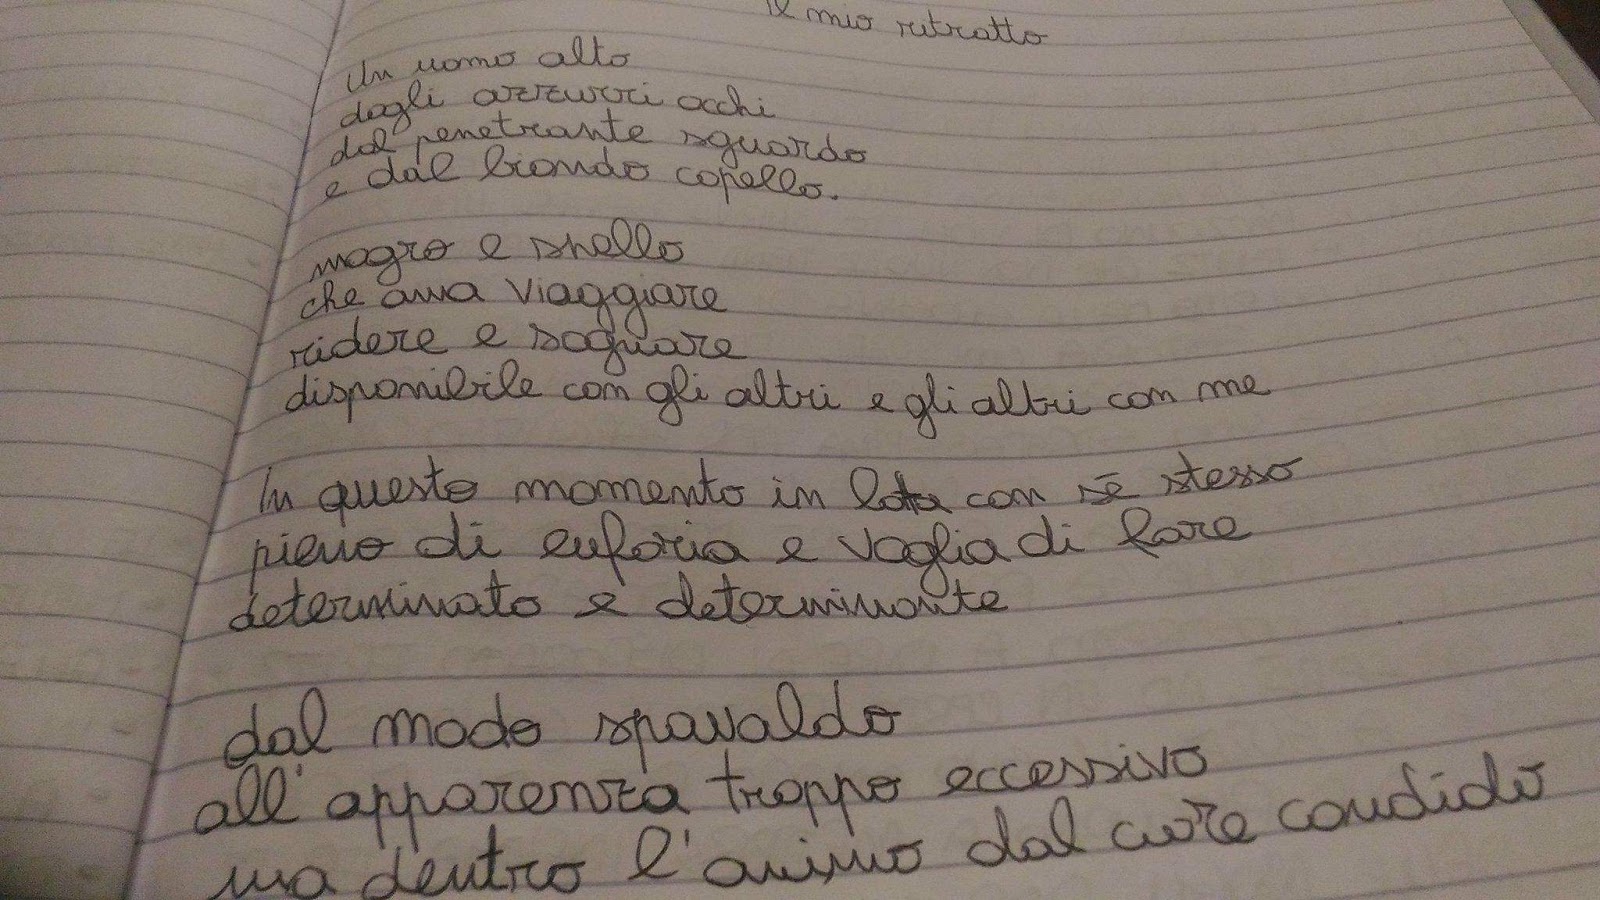 Il mio ritratto
Un uomo alto
dagli azzurri occhi
dal penetrante sguardo
e dal biondo capello.
magro e snello
che ama viaggiare
ridere e sognare
disponibile con gli altri e gli altri con me
In questo momento in lotta con sé stesso
pieno di euforia e voglia di fare
determinato e determinante
dal modo spavaldo
all'apparenza troppo eccessivo
ma dentro l'animo dal cuore candido